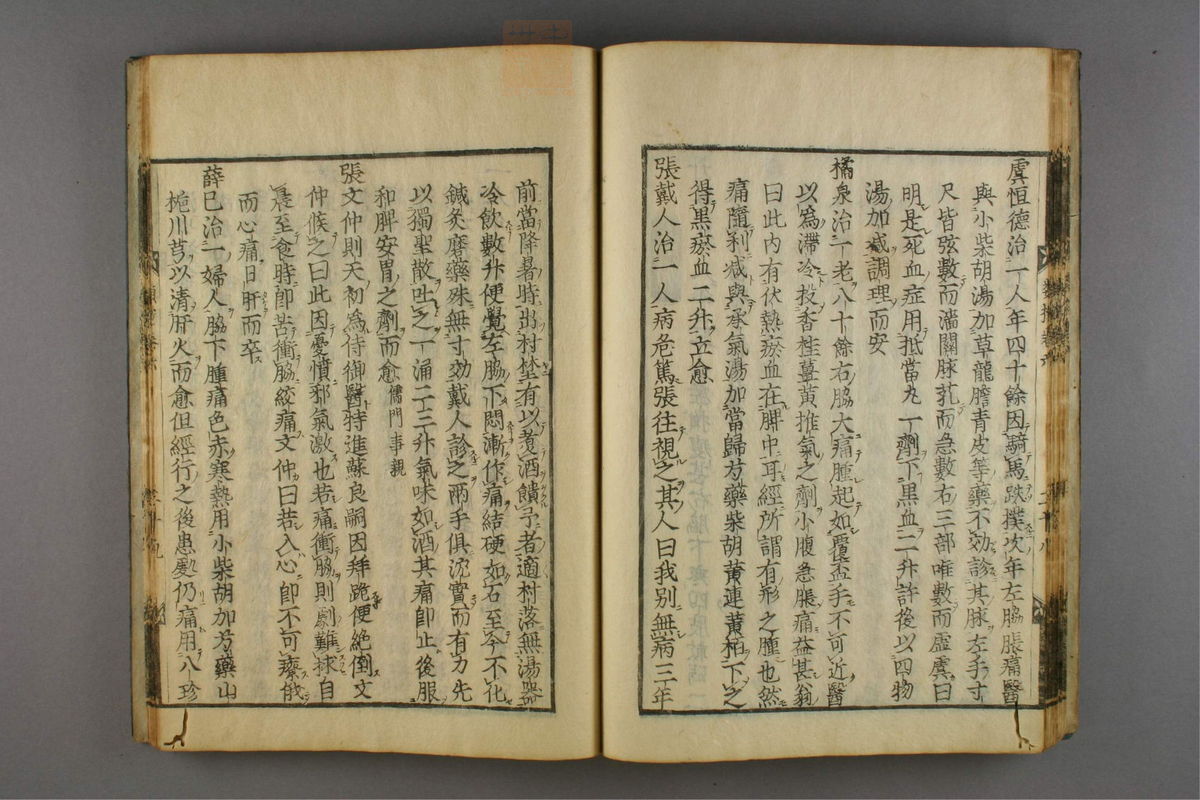 虞恒德治一人年四十餘因騎馬跌撲次年左脇脹痛醫
與小柴胡湯加草龍膽青皮等藥不効診其脉左手寸
尺皆弦數而濇關脉芤而急數右三部唯數而虛虞曰
明是死血症用抵當丸一劑下黒血二升許後以四物
湯加減調理而安
橘泉治一老八十餘右脇大痛腫起如覆盃手不可近醫
以為滯冷投香桂薑黄推氣之劑小腹急脹痛益甚翁
曰此内有伏熱瘀血在脾中耳經所謂有形之腫也然
痛隨利减與承氣湯加當歸芍藥柴胡黄連黄栢下之
得黒瘀血二升立愈
張戴人治一人病危篤張往視之其人曰我别無病三年
前當降暑時出村埜有以煮酒饋予者適村落無湯器
冷飲數升便覺左脇下悶漸作痛結硬如石至今不化
鍼灸磨藥殊無寸効戴人診之兩手俱沈實而有力先
以獨聖散吐之一涌二三升氣味如酒其痛即止後服
和脾安胃之劑而愈儒門事親
張文仲則天初為侍御醫特進蘇良嗣因拜跪便絶倒文
仲候之曰此因憂憤邪氣激也若痛衝脇則劇難救自
晨至食時即苦衝脇絞痛文仲曰若入心即不可療俄
而心痛日旰而卒
薛已治一婦人脇下腫痛色赤寒熱用小柴胡加芎藥山
梔川芎以清肝火而愈但經行之後患處仍痛用八珍